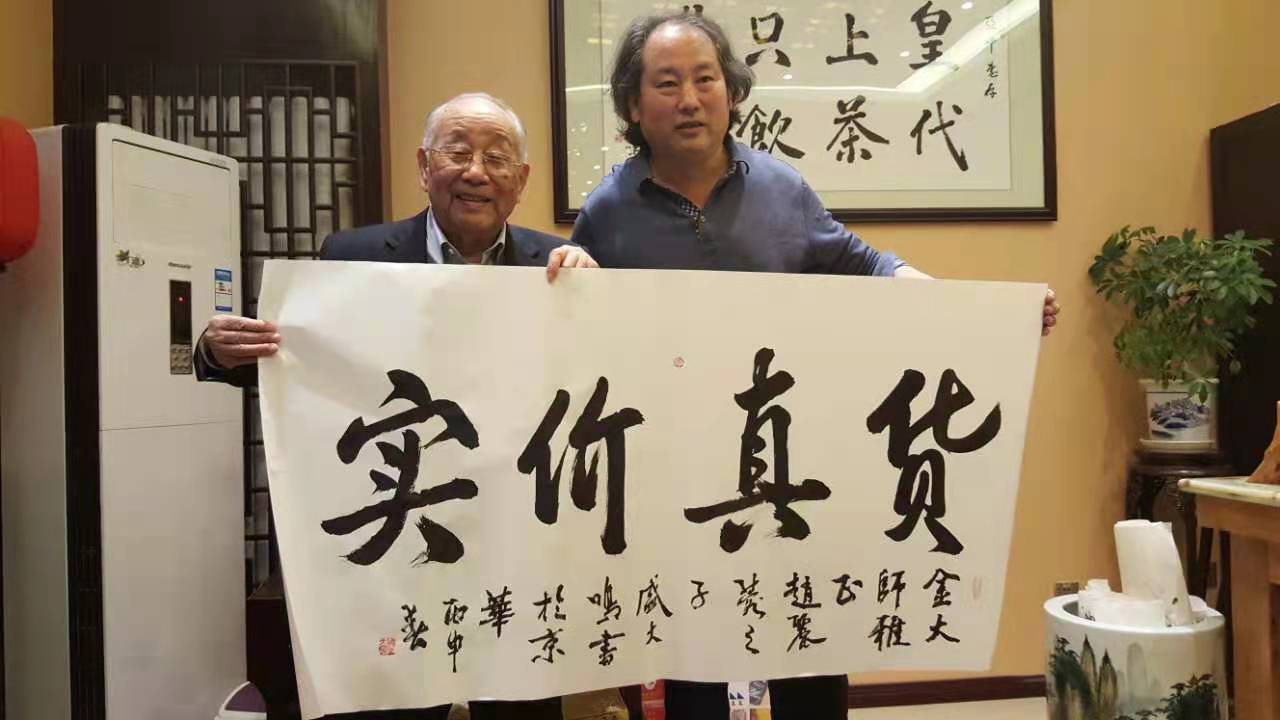 皇上只
代茶飲
货真价实
金大
師雅
正
趙麗
蓉之
子
盛大
鳴書
於京
華
丙申
春